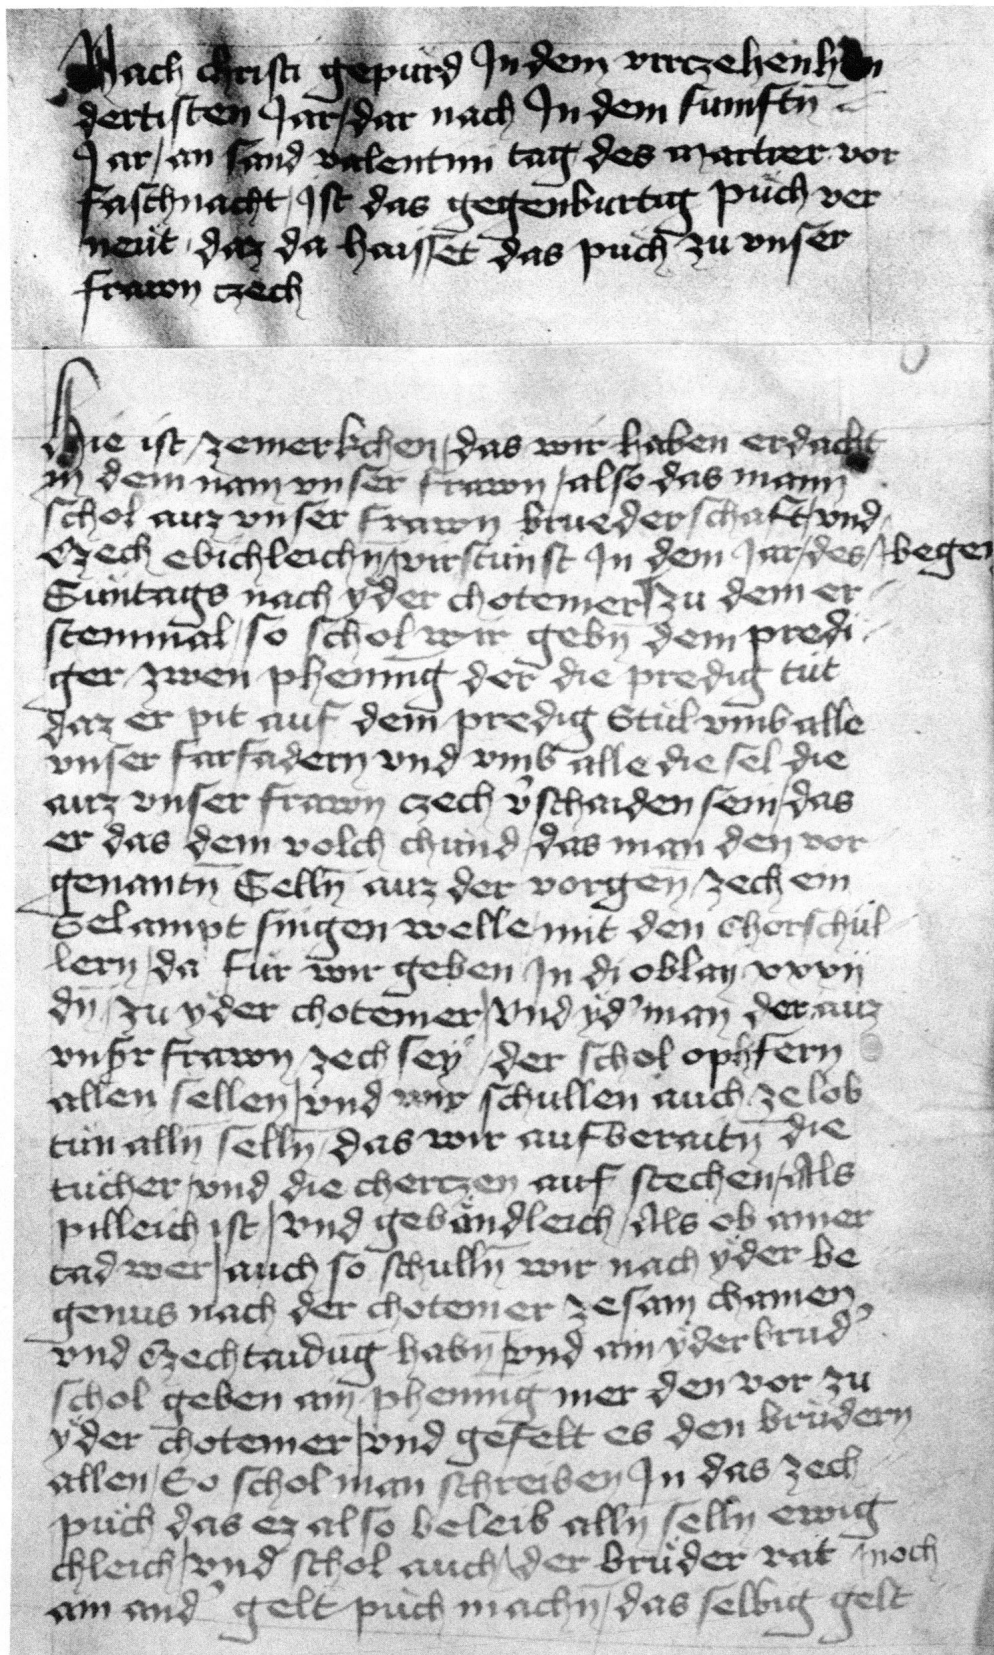 Nach christi gepurd In dem vierczehenhun
dertisten Jar / dar nach In dem fumftn̄
Jar / an sand valentini tag des martrer vor
faschnacht / Ist das gegenburtig püch ver
neut / daz da haisset das püch zu vnser
frawn czech
Hie ist / zemerkchen / das wir haben erdacht
in dem nam vnser frawn / also das mann
schol auz vnser frawn brueder schaft vnd
Czech ebichleichn̄ / virstunst In dem Jar / des / begen
Suntags nach yder chotemer / zu dem er
stenmal / so schol wir gebn̄ dem predi
ger / zwen phening der die predig tüt
daz er pit auf dem predig Stül vmb alle
vnser farfadern vnd vmb alle die sel die
auz vnser frawn czech v̓schaiden sein / das
er das dem volch chund / das man den vor
genantn̄ Selln̄ auz der vorgen̄ / zech ein
Selampt singen welle / mit den chorschül
lern / da für wir geben In di oblay xxxij
dn̄ / zu yder chotemer / vnd yd̓ man der auz
vnsr frawn zech sey / der schol ophfern
allen sellen / vnd wir schullen auch / ze lob
tün alln̄ selln̄ / das wir aufberaitn̄ die
tücher / vnd die chertzen auf stechen / Als
pilleich ist / vnd gebändleich / Als ob ainer
tad wer / auch so schulln̄ wir nach yder be
genus nach der chotemer zesam chamen
vnd Czechtaidūg habn̄ / vnd ain yder brud̓
schol geben ain phening mer den vor zu
yder chotemer / vnd gefelt es den brüdern
allen / So schol man schreiben In das zech
püch das ez also beleib alln̄ selln̄ ewig
chleich / vnd schol auch / der brüder rat / noch
ain and̓ gelt püch machn̄ / das selbig gelt